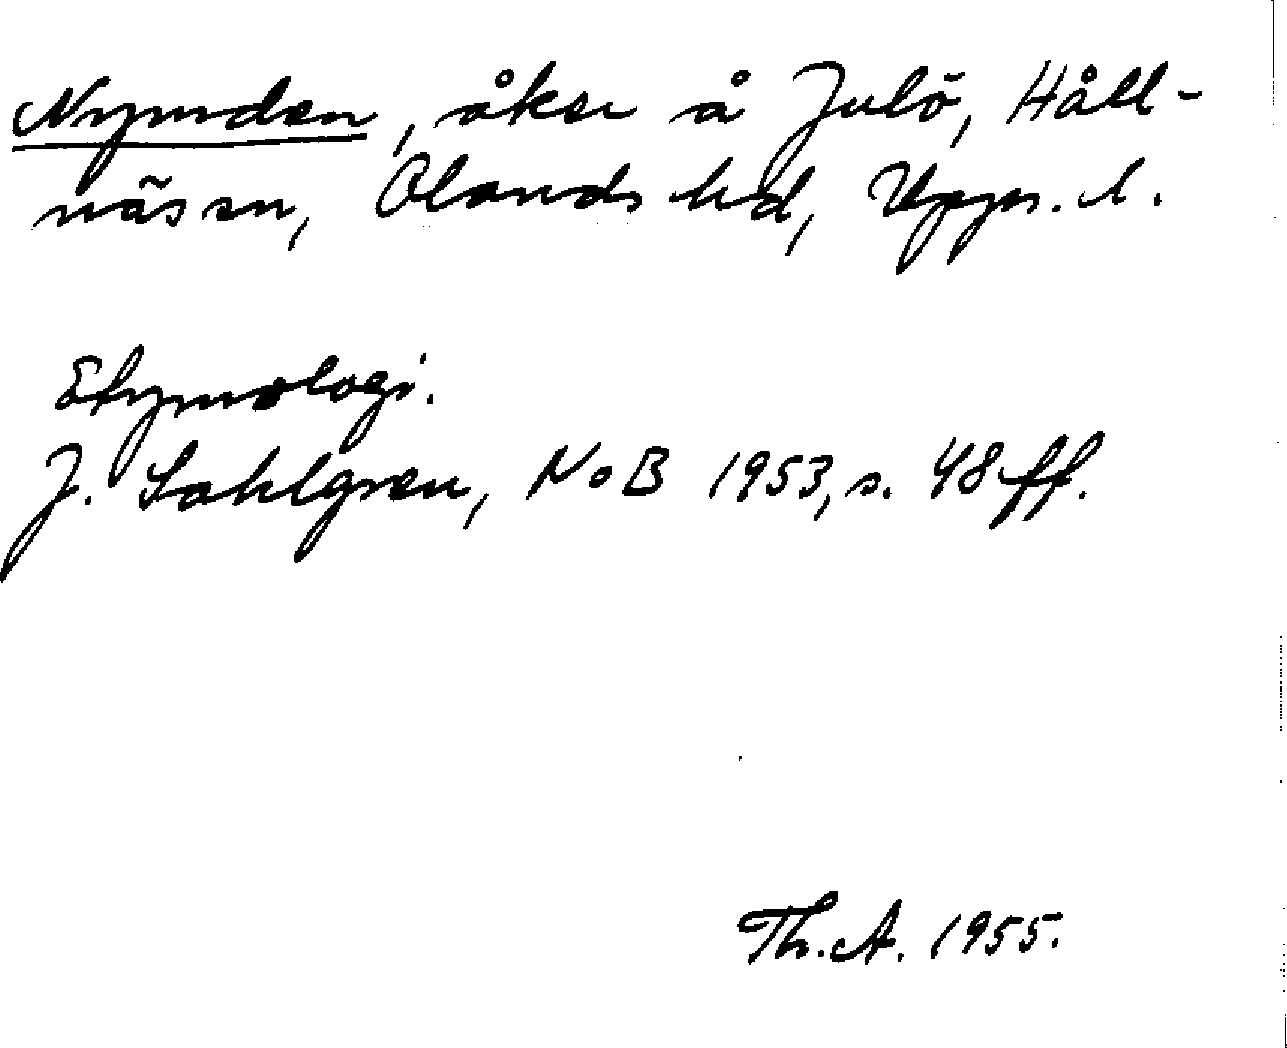 Nyurden, åker å Julö, Håll-
näs sn, Olands hd, Upps. l.
Etymologi.
J. Sahlgren, NoB 1953, s. 48 ff.
Th. A. 1955.